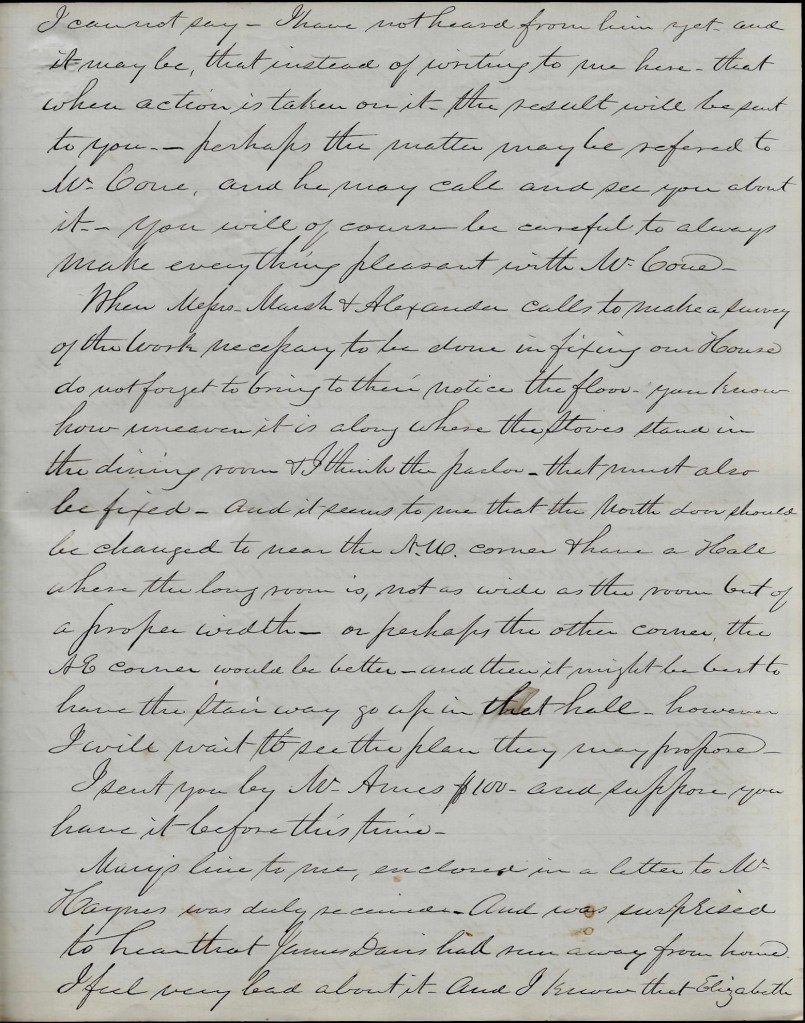 I can not say - I have not heard from him yet - and
it may be, that instead of writing to me here - that
when action is taken on it - the result will be sent
to you - - perhaps the matter may be refered to
Mr. Cone, and he may call and see you about
it - - you will of course be careful to always
make everything pleasant with Mr. Cone -
When Messrs. Marsh & Alexander calls to make a survey
of the work necessary to be done in fixing our House
do not forget to bring to their notice the floor - you know
how uneaven it is along where the stoves stand in
the dining room & I think the parlor - that must also
be fixed - and it seems to me that the North door should
be changed to near the N.W. corner & have a Hall
where the long room is, not as wide as the room but of
a proper width - or perhaps the other corner, the
NE corner would be better - and then it might be best to
have the stair way go up in that hall - however
I will wait to see the plan they may propose -
I sent you by Mr. Ames $100 - and suppose you
have it before this time -
Mary's line to me, enclosed in a letter to Mr.
Haynes was duly received - And was surprised
to hear that James Davis had run away from home.
I feel very bad about it - And I know that Elizabeth